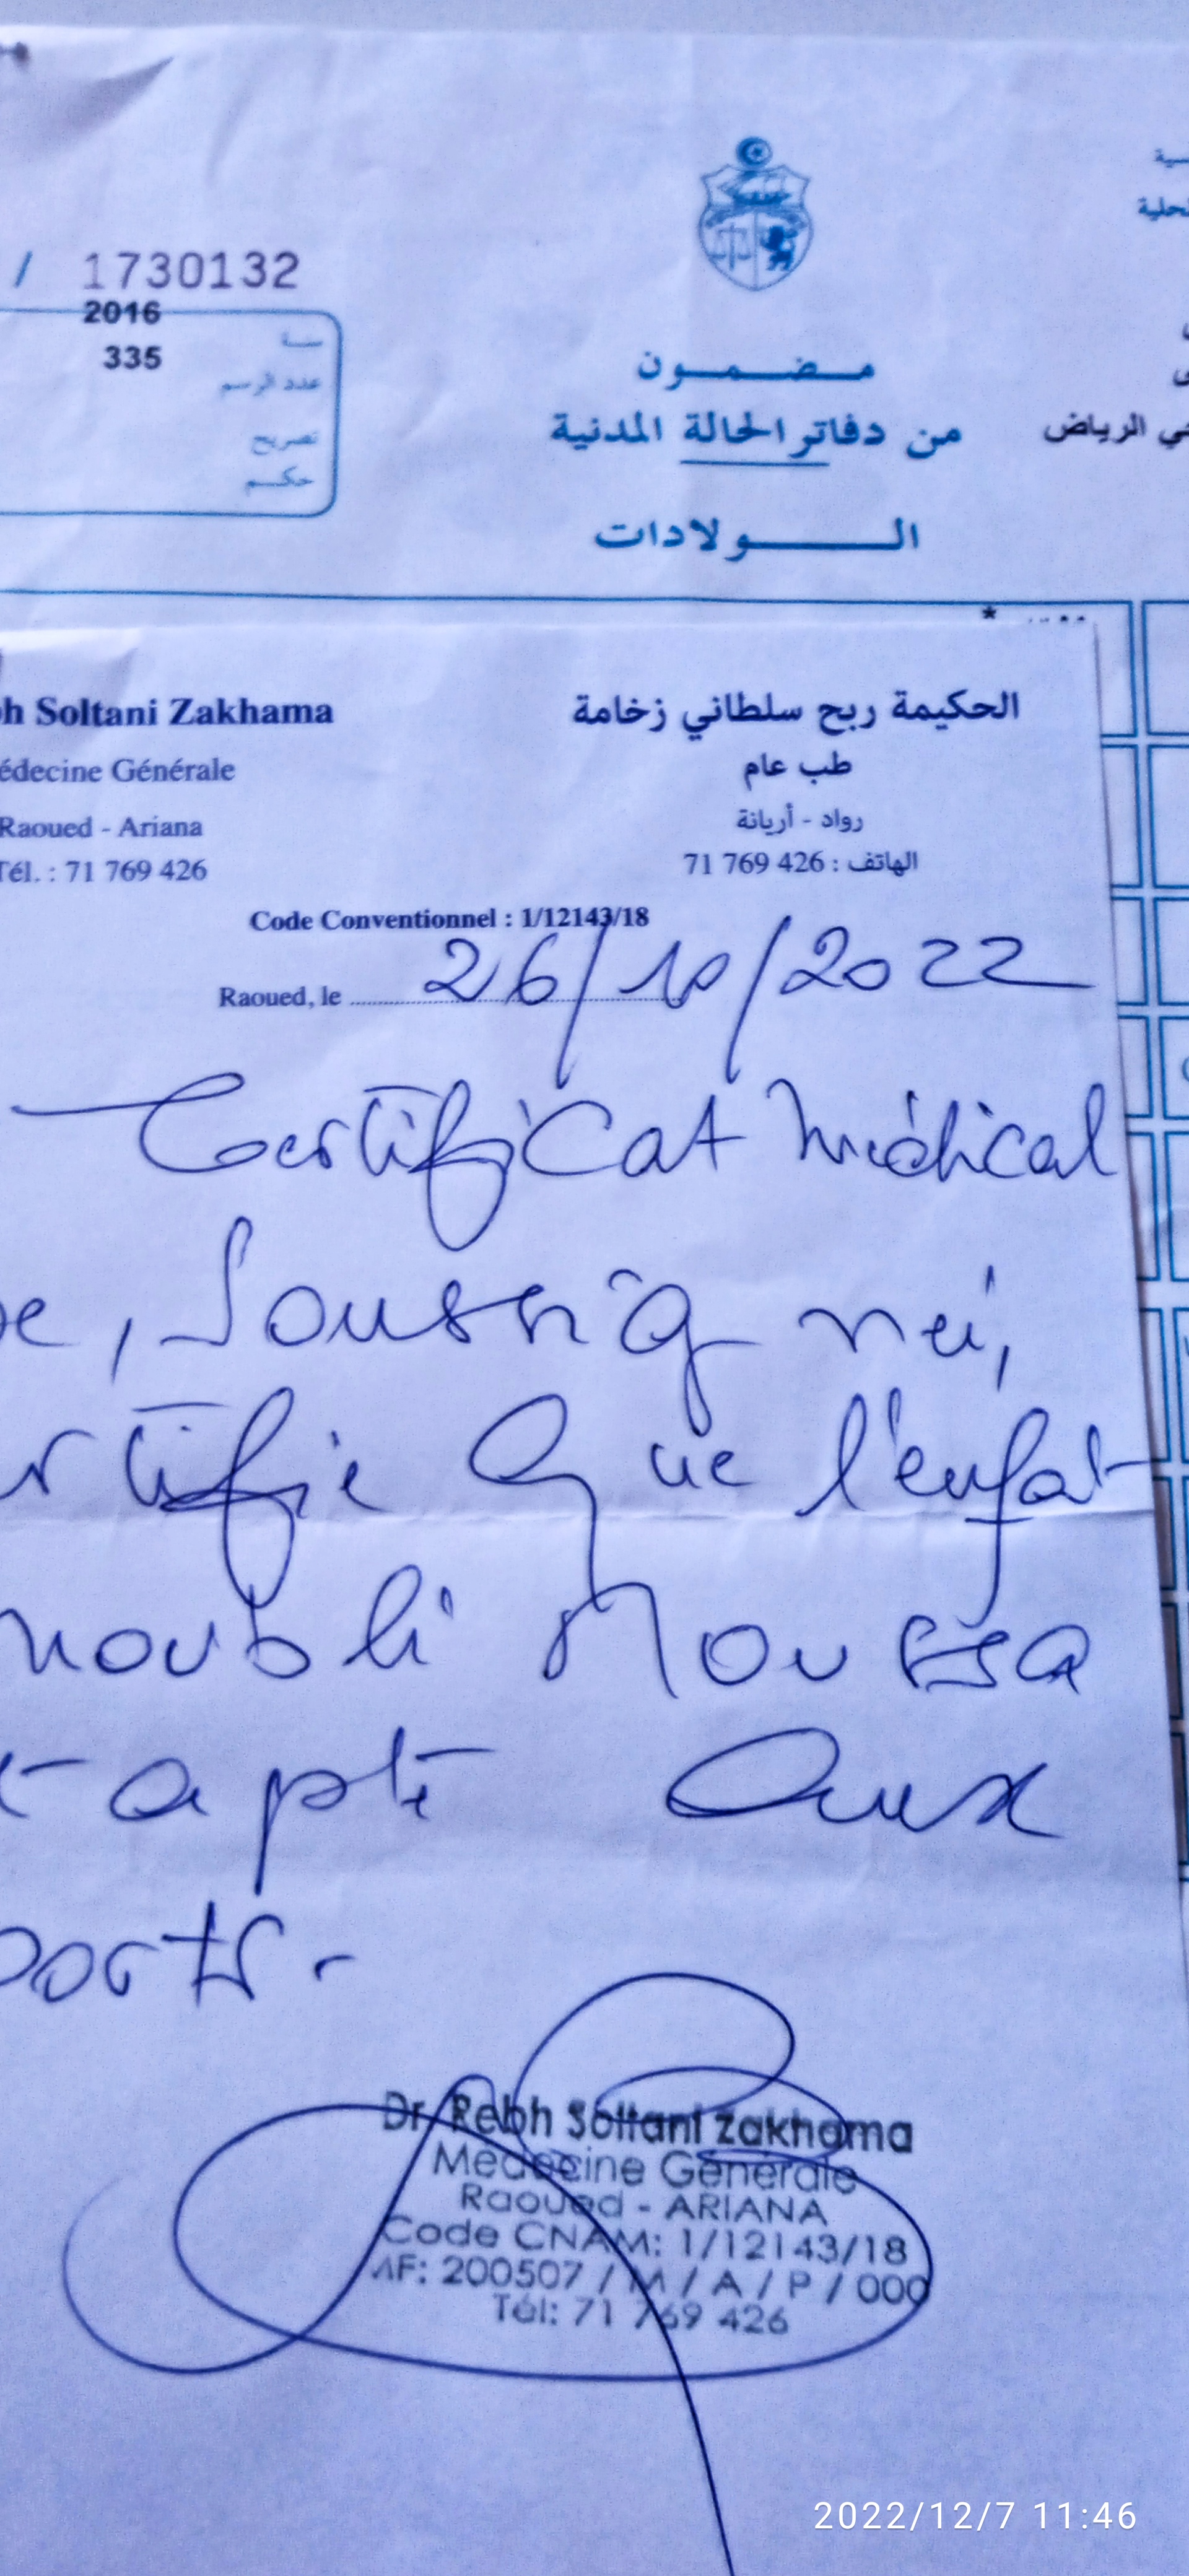 / 1730132
2016
335
سنة
عدد الرسم
تصريح
حكم
مضمون
من دفاتر الحالة المدنية
الولادات
حي الرياض
*
h Soltani Zakhama
édecine Générale
Raoued - Ariana
Tél. : 71 769 426
الحكيمة ربح سلطاني زخامة
طب عام
رواد - أريانة
الهاتف : 426 769 71
Code Conventionnel : 1/12143/18
Raoued, le 26/10/2022
Certificat médical
e, Soussigné,
rtifie que l'enfat
noubli Moussa
t apte aux
ports.
Dr. Rebh Soltani Zakhama
Médecine Générale
Raoued - ARIANA
Code CNAM: 1/12143/18
MF: 200507 / M / A / P / 000
Tél: 71 769 426
2022/12/7 11:46